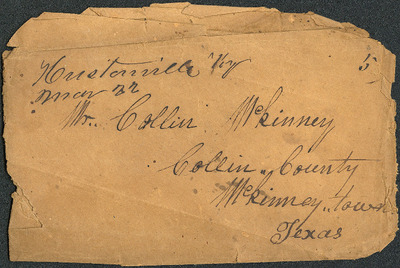 Hustonville Ky 5
Mar 22
Mr. Collin McKinney
Collin County
McKinney town
Texas